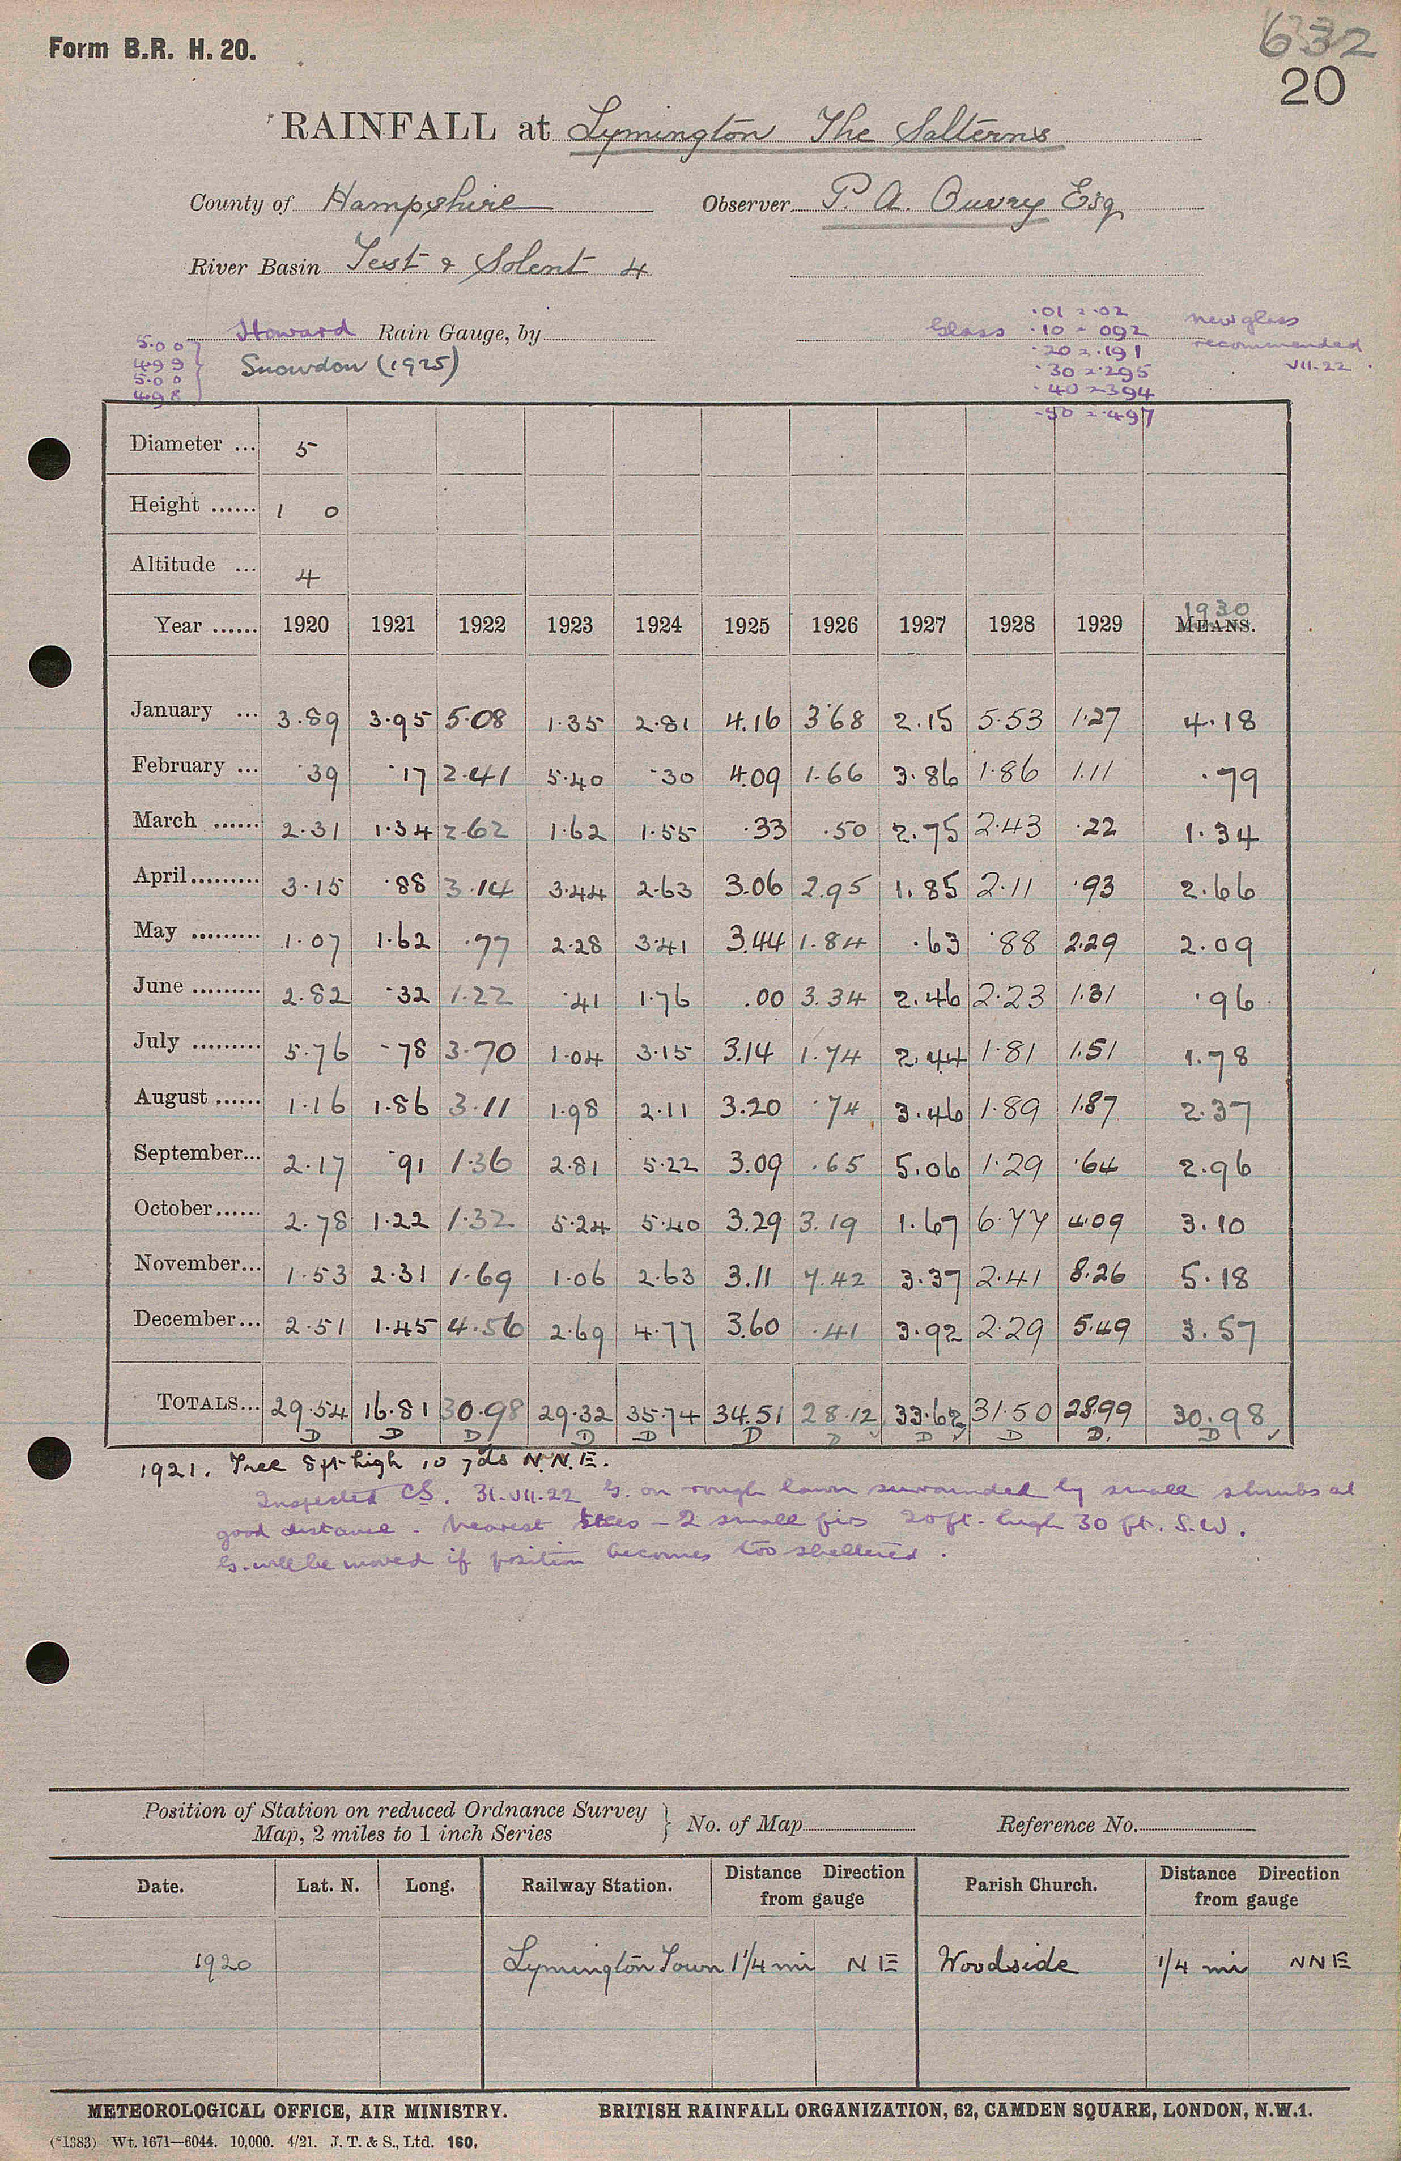 Form B.R. H. 20.
632
20
RAINFALL at Lymington The Salterns
County of Hampshire Observer P. A. Ouvry Esq
River Basin Test & Solent 4
Howard Rain Gauge, by
Snowdon (1925)
5.00
4.99
5.00
4.98
Glass
.01 = .02
.10 = .092
.20 = .191
.30 = .295
.40 = .394
.50 = .497
new glass
recommended
VII.22.
Diameter ... 5
Height ...... 1 0
Altitude ... 4
1930
Year ...... 1920 1921 1922 1923 1924 1925 1926 1927 1928 1929 MEANS.
January ... 3.89 3.95 5.08 1.35 2.81 4.16 3.68 2.15 5.53 1.27 4.18
February ... .39 .17 2.41 5.40 .30 4.09 1.66 3.86 1.86 1.11 .79
March ...... 2.31 1.34 2.62 1.62 1.55 .33 .50 2.75 2.43 .22 1.34
April......... 3.15 .88 3.14 3.44 2.63 3.06 2.95 1.85 2.11 .93 2.66
May ......... 1.07 1.62 .77 2.28 3.41 3.44 1.84 .63 .88 2.29 2.09
June ......... 2.82 .32 1.22 .41 1.76 .00 3.34 2.46 2.23 1.31 .96
July ......... 5.76 .78 3.70 1.04 3.15 3.14 1.74 2.44 1.81 1.51 1.78
August ...... 1.16 1.86 3.11 1.98 2.11 3.20 .74 3.46 1.89 1.87 2.37
September... 2.17 .91 1.36 2.81 5.22 3.09 .65 5.06 1.29 .64 2.96
October...... 2.78 1.22 1.32 5.24 5.40 3.29 3.19 1.67 6.77 4.09 3.10
November... 1.53 2.31 1.69 1.06 2.63 3.11 7.42 3.37 2.41 8.26 5.18
December... 2.51 1.45 4.56 2.69 4.77 3.60 .41 3.92 2.29 5.49 3.57
TOTALS... 29.54 16.81 30.98 29.32 35.74 34.51 28.12 33.62 31.50 28.99 30.98
D D D D D D D D D D. D
1921. Tree 8 ft high 10 yds N.N.E.
Inspected CS. 31.VII.22 G. on rough lawn surrounded by small shrubs at
good distance. Nearest trees - 2 small firs 20 ft. high 30 ft. S.W.
G. will be moved if position becomes too sheltered.
Position of Station on reduced Ordnance Survey
Map, 2 miles to 1 inch Series } No. of Map Reference No.
Date. Lat. N. Long. Railway Station. Distance from gauge Direction Parish Church. Distance from gauge Direction
1920 Lymington Town 1 1/4 mi N E Woodside 1/4 mi NNE
METEOROLOGICAL OFFICE, AIR MINISTRY. BRITISH RAINFALL ORGANIZATION, 62, CAMDEN SQUARE, LONDON, N.W.1.
(*1383) Wt. 1671—6044. 10,000. 4/21. J. T. & S., Ltd. 160.